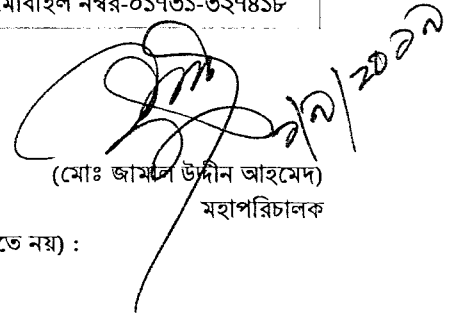 মোবাইল নম্বর-০১৭৩১-৩২৭৪১৮
(মোঃ জামাল উদ্দীন আহমেদ)
মহাপরিচালক
নয়) :